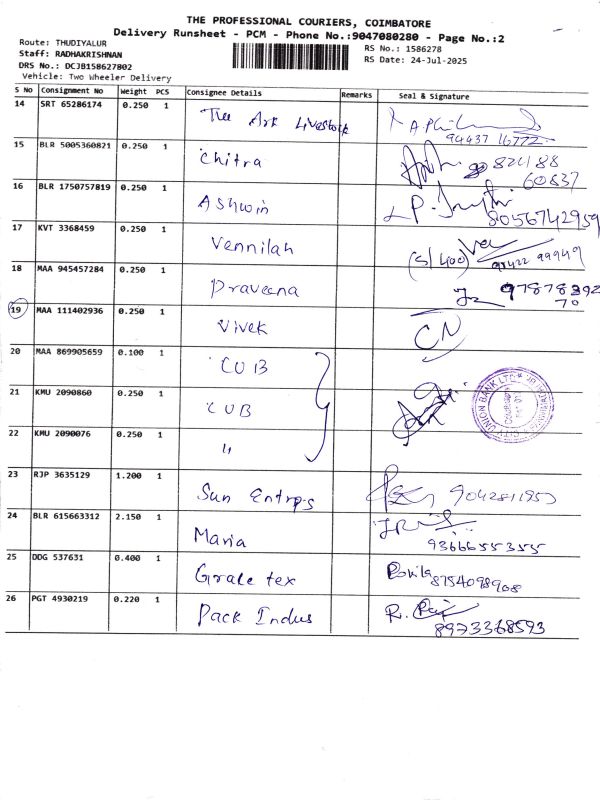 THE PROFESSIONAL COURIERS, COIMBATORE
Delivery Runsheet - PCM - Phone No.:9047080280 - Page No.:2
Route: THUDIYALUR
Staff: RADHAKRISHNAN
DRS No.: DCJB158627802
Vehicle: Two Wheeler Delivery
RS No.: 1586278
RS Date: 24-Jul-2025
S No Consignment No Weight PCS Consignee Details Remarks Seal & Signature
14 SRT 65286174 0.250 1 The Ark Livestock 94437 16772
15 BLR 5005360821 0.250 1 Chitra 60837
16 BLR 1750757819 0.250 1 Ashwin 8056742959
17 KVT 3368459 0.250 1 Vennilah 99949
18 MAA 945457284 0.250 1 Praveena 97878392
70
19 MAA 111402936 0.250 1 Vivek CN
20 MAA 869905659 0.100 1 CUB
21 KMU 2090860 0.250 1 CUB
22 KMU 2090076 0.250 1 "
UNION BANK LTD
23 RJP 3635129 1.200 1 Sun Entrps
24 BLR 615663312 2.150 1 Maria 9366655355
25 DDG 537631 0.400 1 Grace tex 8754098908
26 PGT 4930219 0.220 1 Pack Indus 8973368593